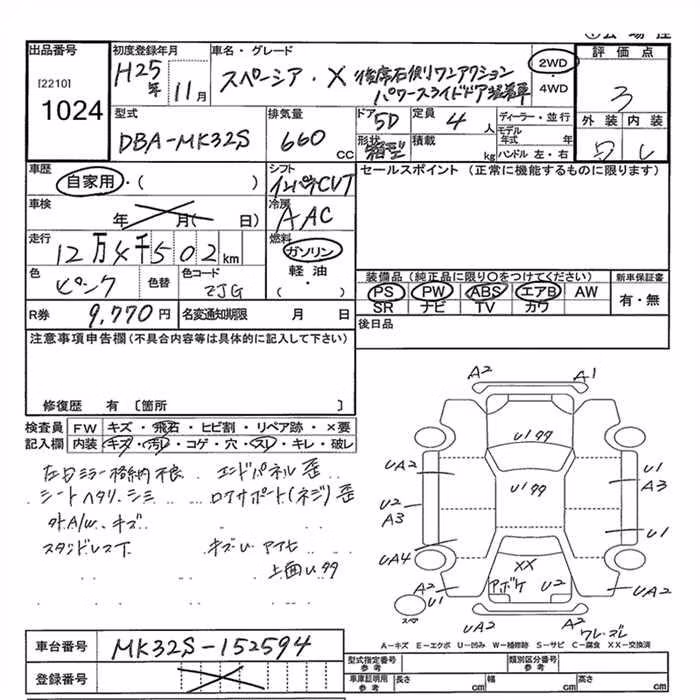 出品番号 初度登録年月 車名・グレード 評価点
[2210] 1024
H25年 11月
スペーシア・X 後席右側ワンアクション
パワースライドドア装着車
2WD
・4WD
3
型式 排気量 ドア 定員 ディーラー・並行
DBA-MK32S 660 CC 5D 4人
形状 箱型 積載 kg
モデル年式 年
ハンドル 左・右
外装 内装
車歴 シフト セールスポイント(正常に機能するものに限ります)
自家用・( )
インパネCVT
車検 年 月( 日)
冷房 AAC
走行 12万4千502km
燃料 ガソリン
軽油
・( )
色 ピンク 色替 色コード ZJG
装備品(純正品に限り○をつけてください) 新車保証書
PS PW ABS エアB AW 有・無
SR ナビ TV カワ
R券 9,770円 名変通知期限 月 日
後日品
注意事項申告欄(不具合内容等は具体的に記入して下さい)
修復歴 有 〔箇所 〕
検査員 FW キズ・飛石・ヒビ割・リペア跡・×要
記入欄 内装 キズ・汚レ・コゲ・穴・スレ・キレ・破レ
左Dミラー格納不良 エンドパネル歪
シートヘタリ、シミ ロアサポート(ネジ)歪
外A/w、キズ
スタンドレス下 キズU
上面Uタタ
A2 A1
Uタタ
UA2 U1
A3
U1タタ
U2
A3
U1
UA4
XX
アボケ U2
A2
U1
UA2
スペア
UA2 A2
ワレ・ズレ
A-キズ E-エクボ U-凹み W-補修跡 S-サビ C-腐食 XX-交換済
車台番号 MK32S-152594
登録番号
型式指定番号 参考 類別区分番号 参考
車庫証明用 参考 長さ cm 幅 cm 高さ cm